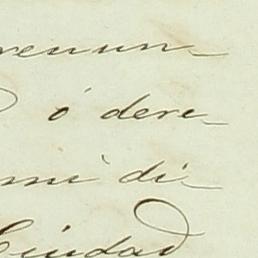 renun-
ó dere-
mi di-
Ciudad